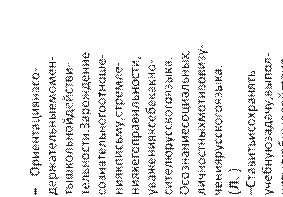 – Ориентациянасо-
держательныемомен-
тышкольнойдействи-
тельности.Зарождение
сознательногоотноше-
ниякписьму,стремле-
ниякегоправильности,
уваженияксебекакно-
сителюрусскогоязыка.
Осознаниесоциальных,
личностныхмотивовизу-
чениярусскогоязыка.
(Л. )
–Ставитьисохранять
учебнуюзадачу,выпол-